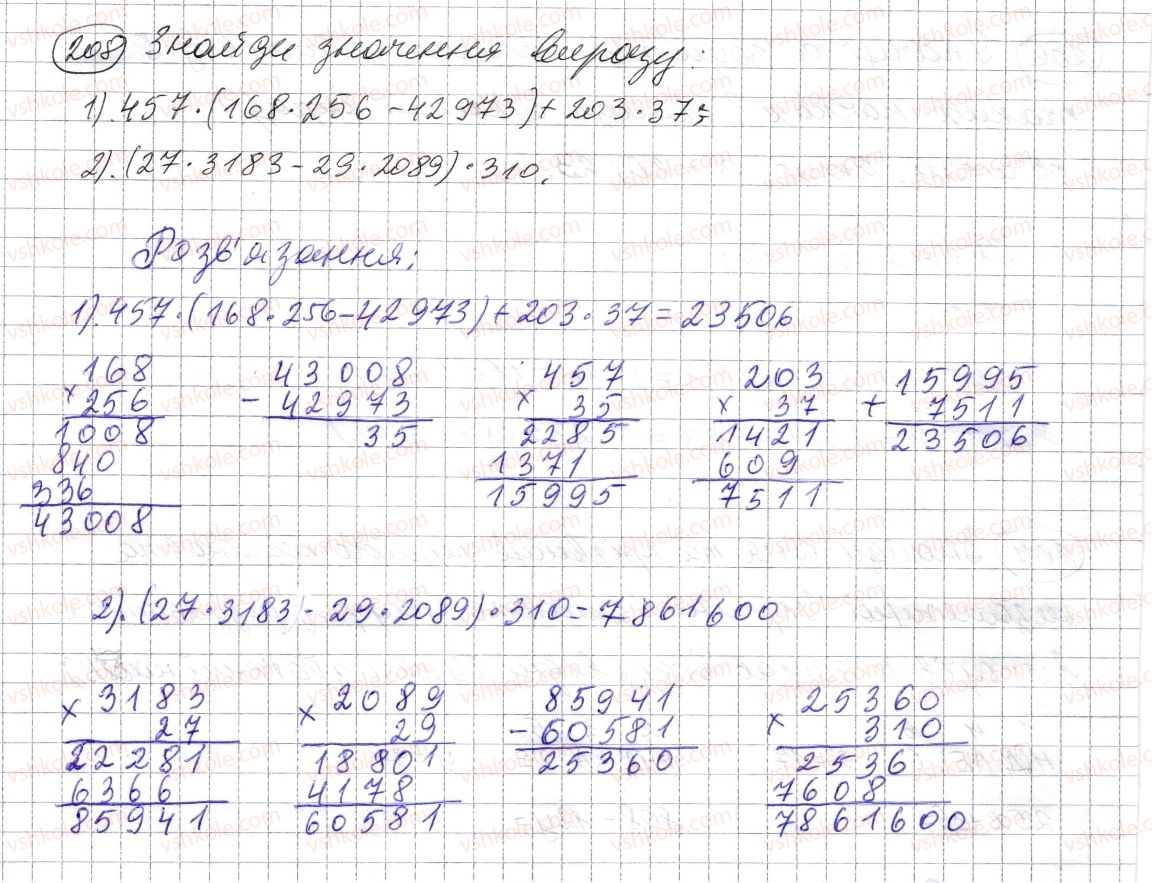 208 Знайди значення виразу:
1). 457·(168·256-42973)+203·37;
2). (27·3183-29·2089)·310.
Розв'язання:
1). 457·(168·256-42973)+203·37=23506
168
×256
1008
840
336
43008
43008
-42973
35
457
× 35
2285
1371
15995
203
× 37
1421
609
7511
15995
+ 7511
23506
2). (27·3183-29·2089)·310=7861600
×3183
27
22281
6366
85941
×2089
29
18801
4178
60581
85941
-60581
25360
25360
× 310
2536
7608
7861600
vshkole.com